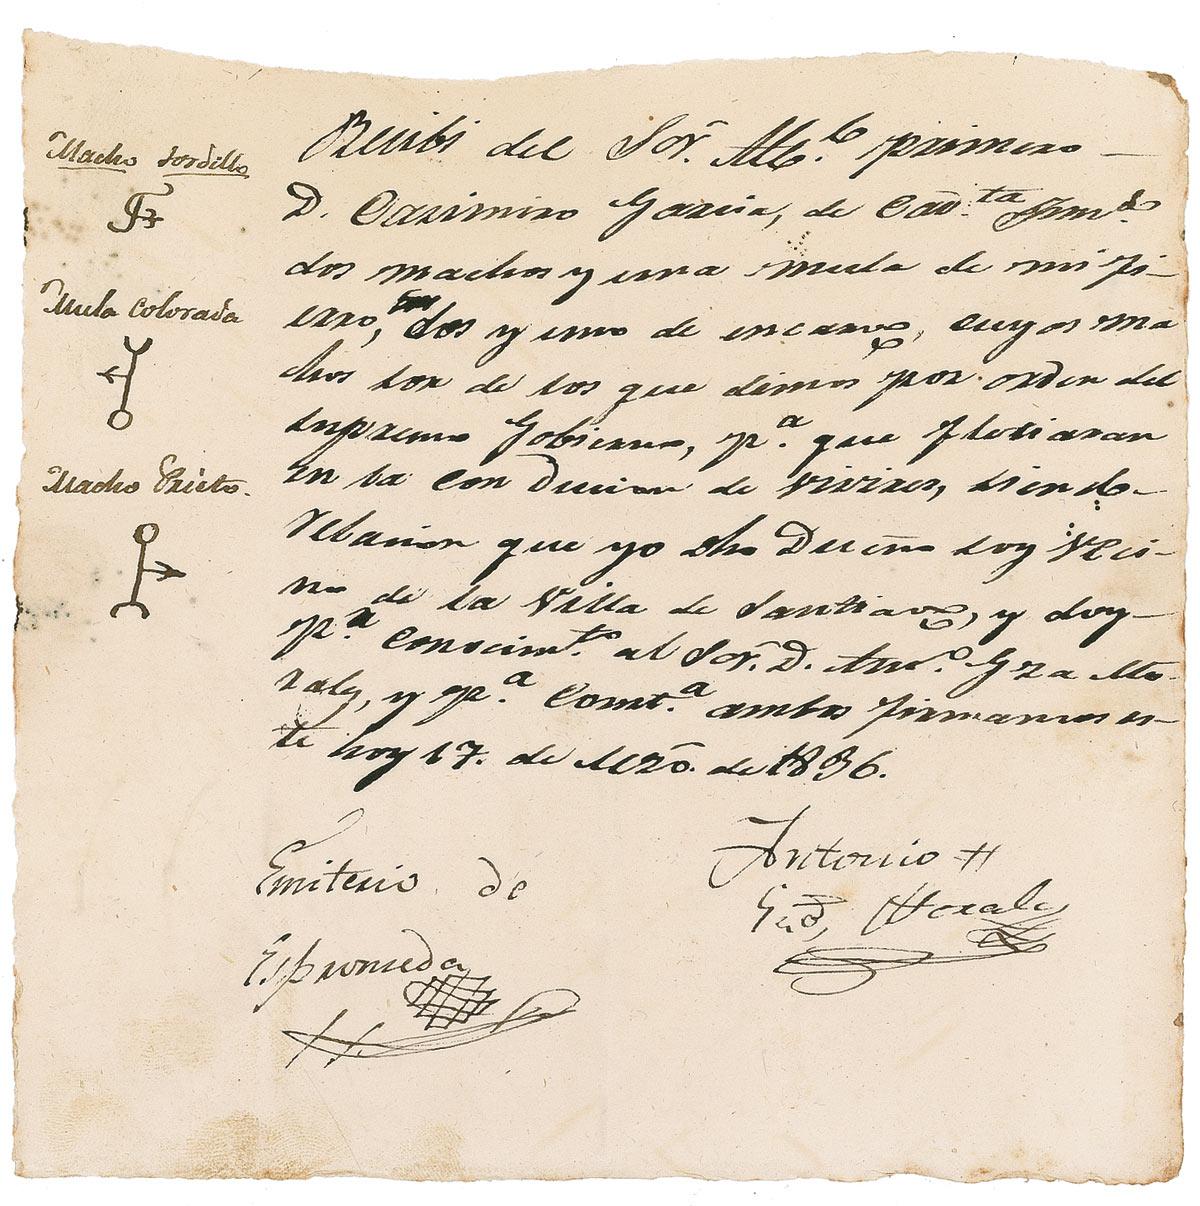 Macho tordillo
Mula Colorada
Macho Prieto.
Recibi del Sor. Alc.e primero
D. Casimiro Garcia, de
dos machos y una mula de mi fi-
erro, dos y uno de encargo, cuyos ma
chos son de los que dimos por orden del
supremo Gobierno, p.a que fletiaran
en la Conduccion de Viveres, siendo
relacion que yo dho Dueño soy Veci-
no de la Villa de Santiago, y doy
p.a Conocim.to al Sor. D. Ant.o Gza Mo-
rales, y p.a Const.a ambos firmamos es-
te hoy 17. de Mzo. de 1836.
Emiterio de
Espronseda
Antonio
Morales